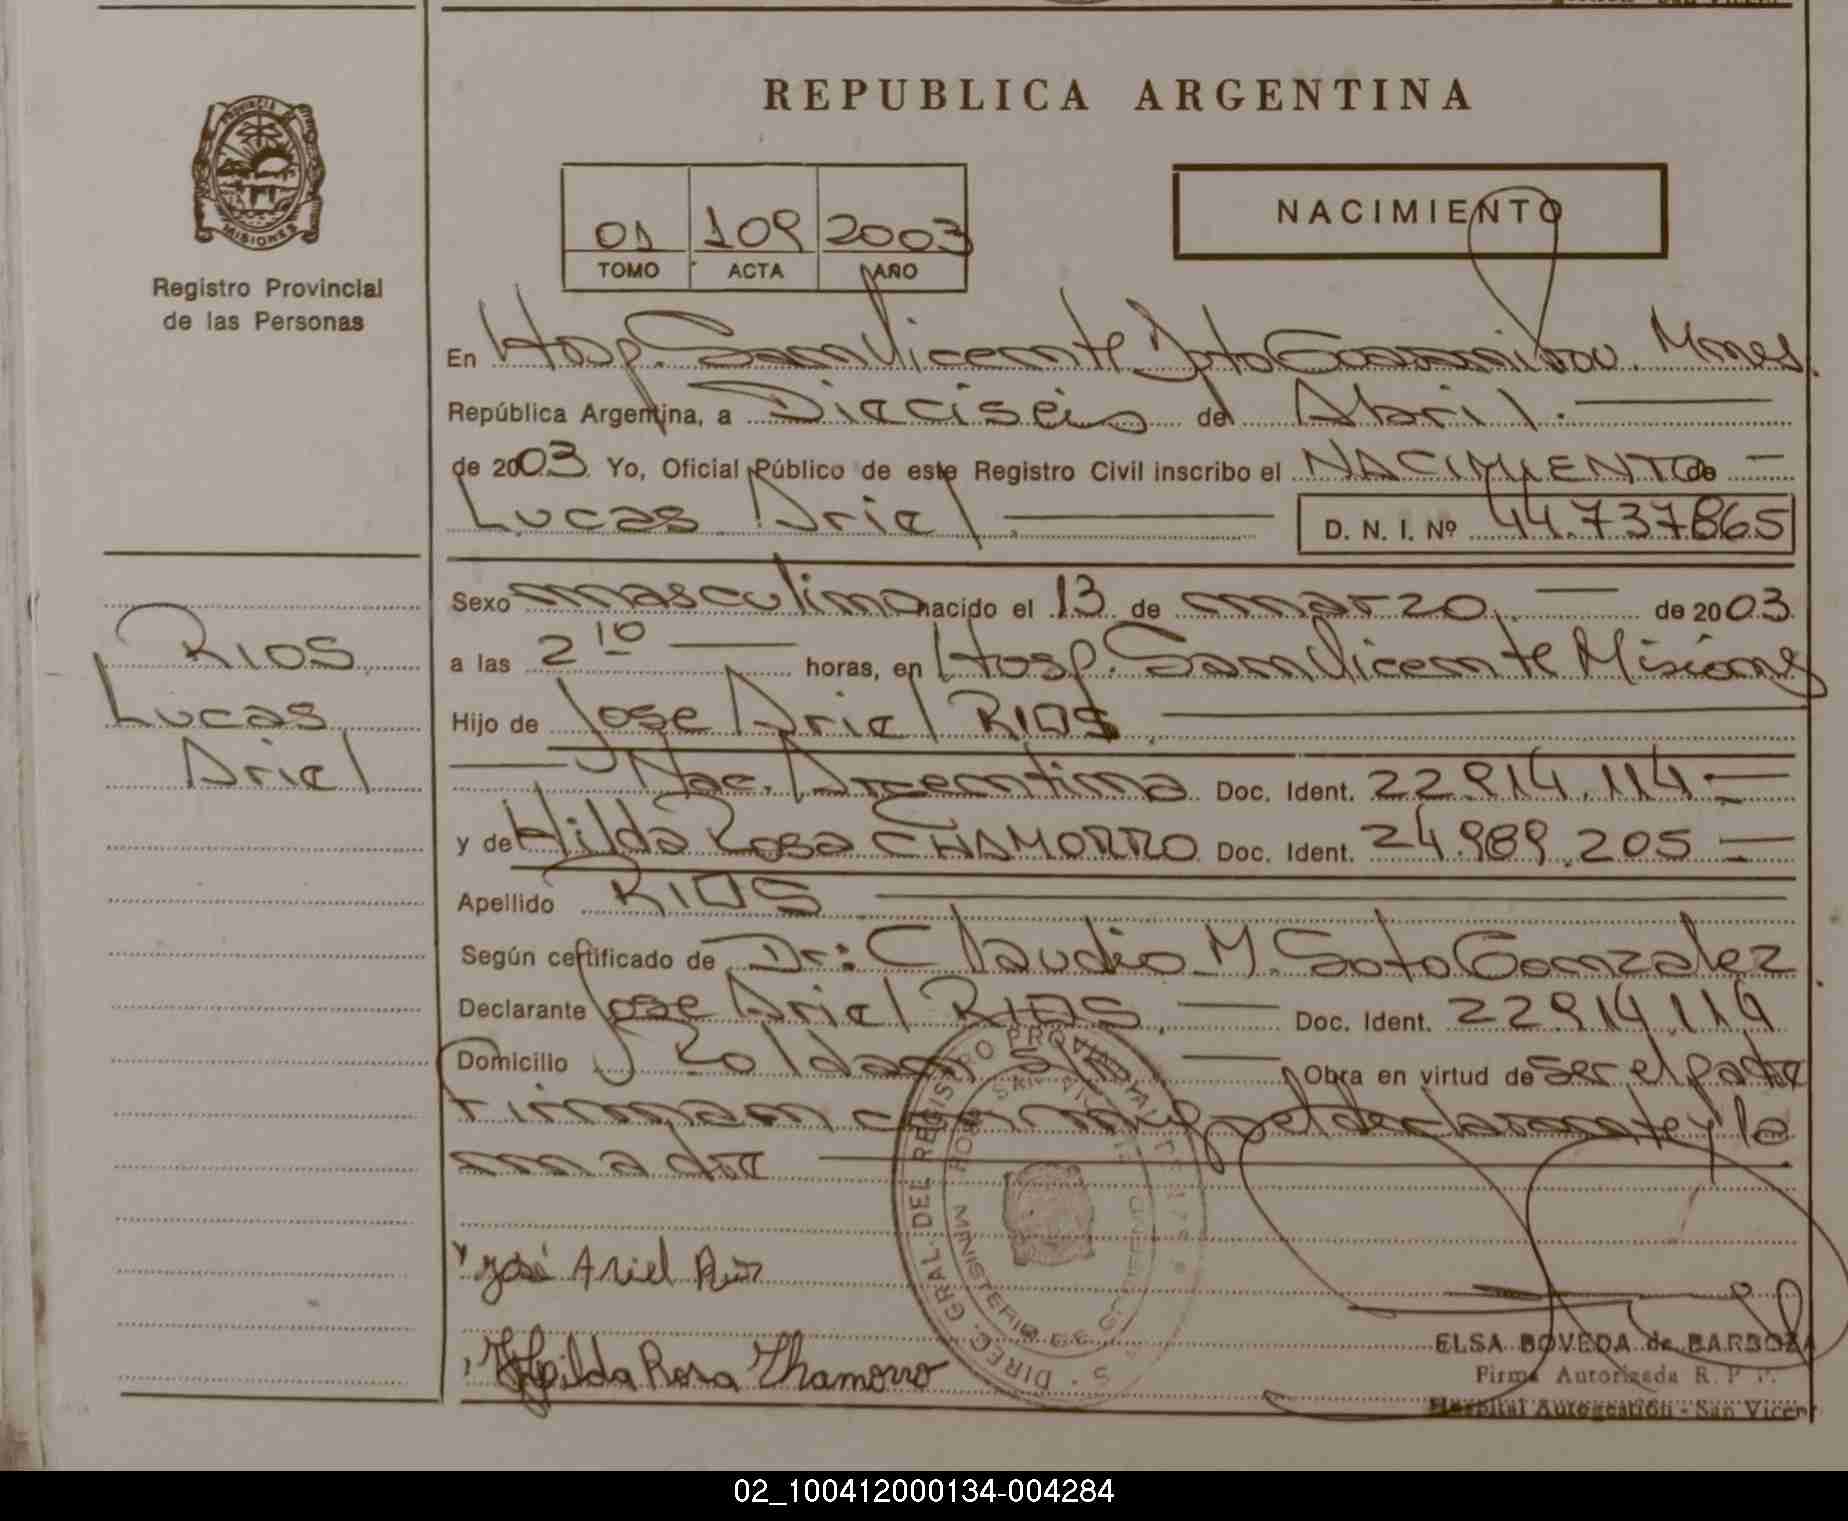 REPUBLICA ARGENTINA
PROVINCIA
MISIONES
Registro Provincial
de las Personas
01 109 2003
TOMO ACTA AÑO
NACIMIENTO
En Hosp. San Vicente Dpto Guaraní Prov. Mnes.
República Argentina, a Dieciséis de Abril.
de 2003 Yo, Oficial Público de este Registro Civil inscribo el NACIMIENTO de
Lucas Ariel D. N. I. Nº 44.737865
Sexo masculino nacido el 13 de marzo de 2003
a las 2 10 horas, en Hosp. San Vicente Misiones
RIOS
Lucas
Ariel
Hijo de Jose Ariel RIOS
Nac. Argentina Doc. Ident. 22.914.114
y de Hilda Rosa CHAMORRO Doc. Ident. 24.989.205
Apellido RIOS
Según certificado de Dr: Claudio M. Soto Gonzalez
Declarante Jose Ariel RIOS. Doc. Ident. 22914.114
Domicilio Roldan S/N Obra en virtud de ser el padre
Firman conmigo el declarante y la
madre
José Ariel Rios
Hilda Rosa Chamorro
DIREC. GRAL. DEL REGISTRO PROVINCIAL
MINISTERIO DE GOBIERNO
ELSA BOVEDA de BARBOZA
Firma Autorizada R. P. P.
Hospital Autogestión - San Vicen
02_100412000134-004284